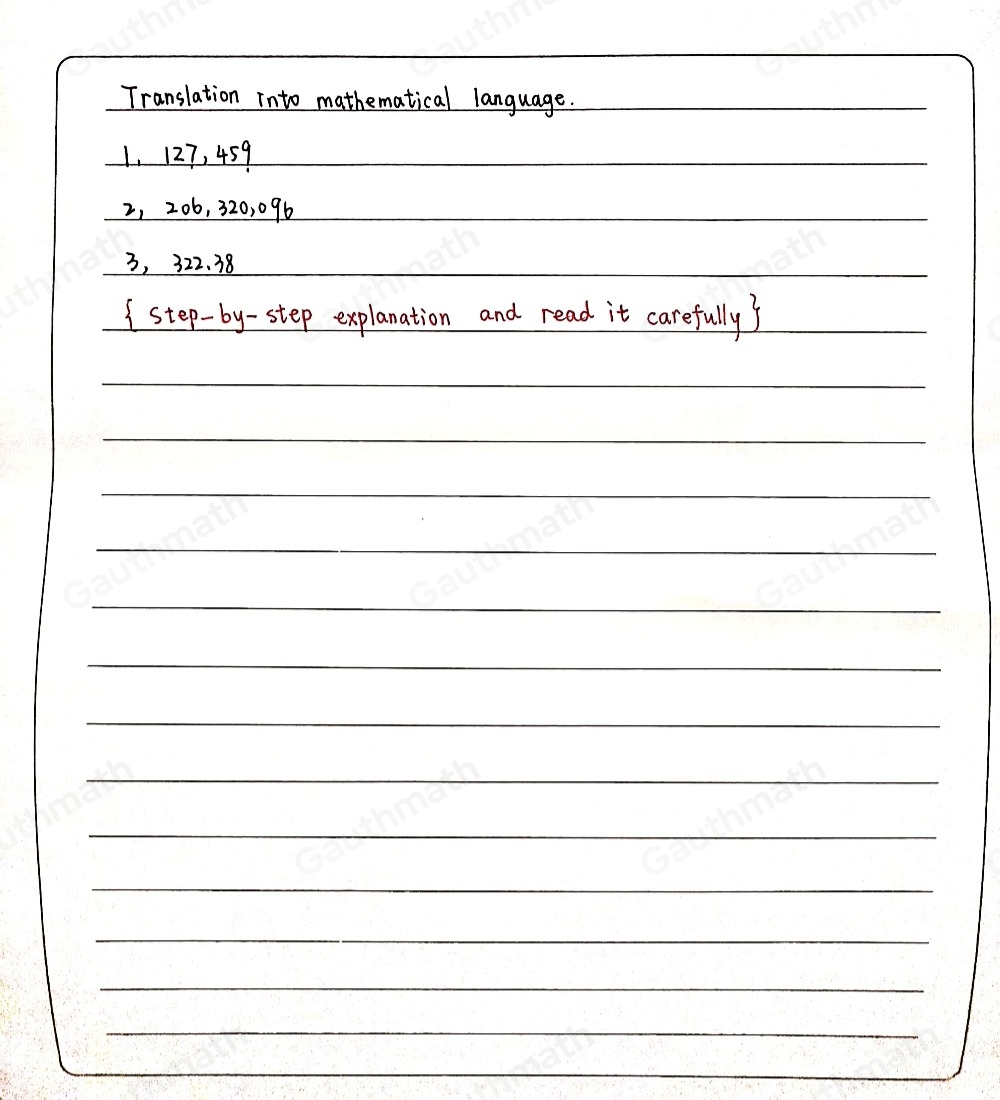 Translation into mathematical language.
1, 127,459
2, 206,320,096
3, 322.38
{ Step-by-step explanation and read it carefully }